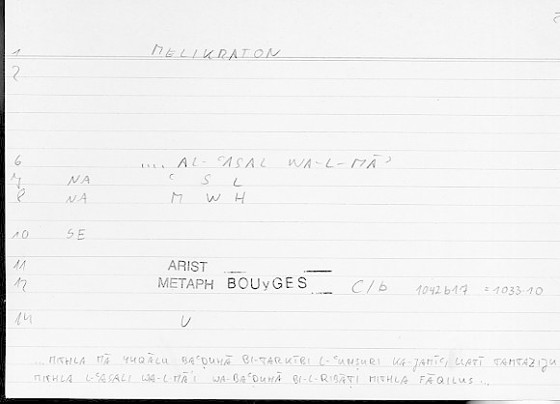 1 MELIKRATON
2
6 .... AL-ʿASAL WA-L-MĀʾ
7 NA ʿ S L
8 NA M W H
10 SE
11 ARIST
12 METAPH BOUyGES C/b 1042b17 = 1033.10
14 V
... MITHLA MĀ YUQĀLU BAʿḌUHĀ BI-TARKĪBI L-ʿUNṢURI KA-JAMĪʿI LLATĪ TAMTAZIJU
MITHLA L-ʿASALI WA-L-MĀʾI WA-BAʿḌUHĀ BI-L-RIBĀṬI MITHLA FĀQILUS ...